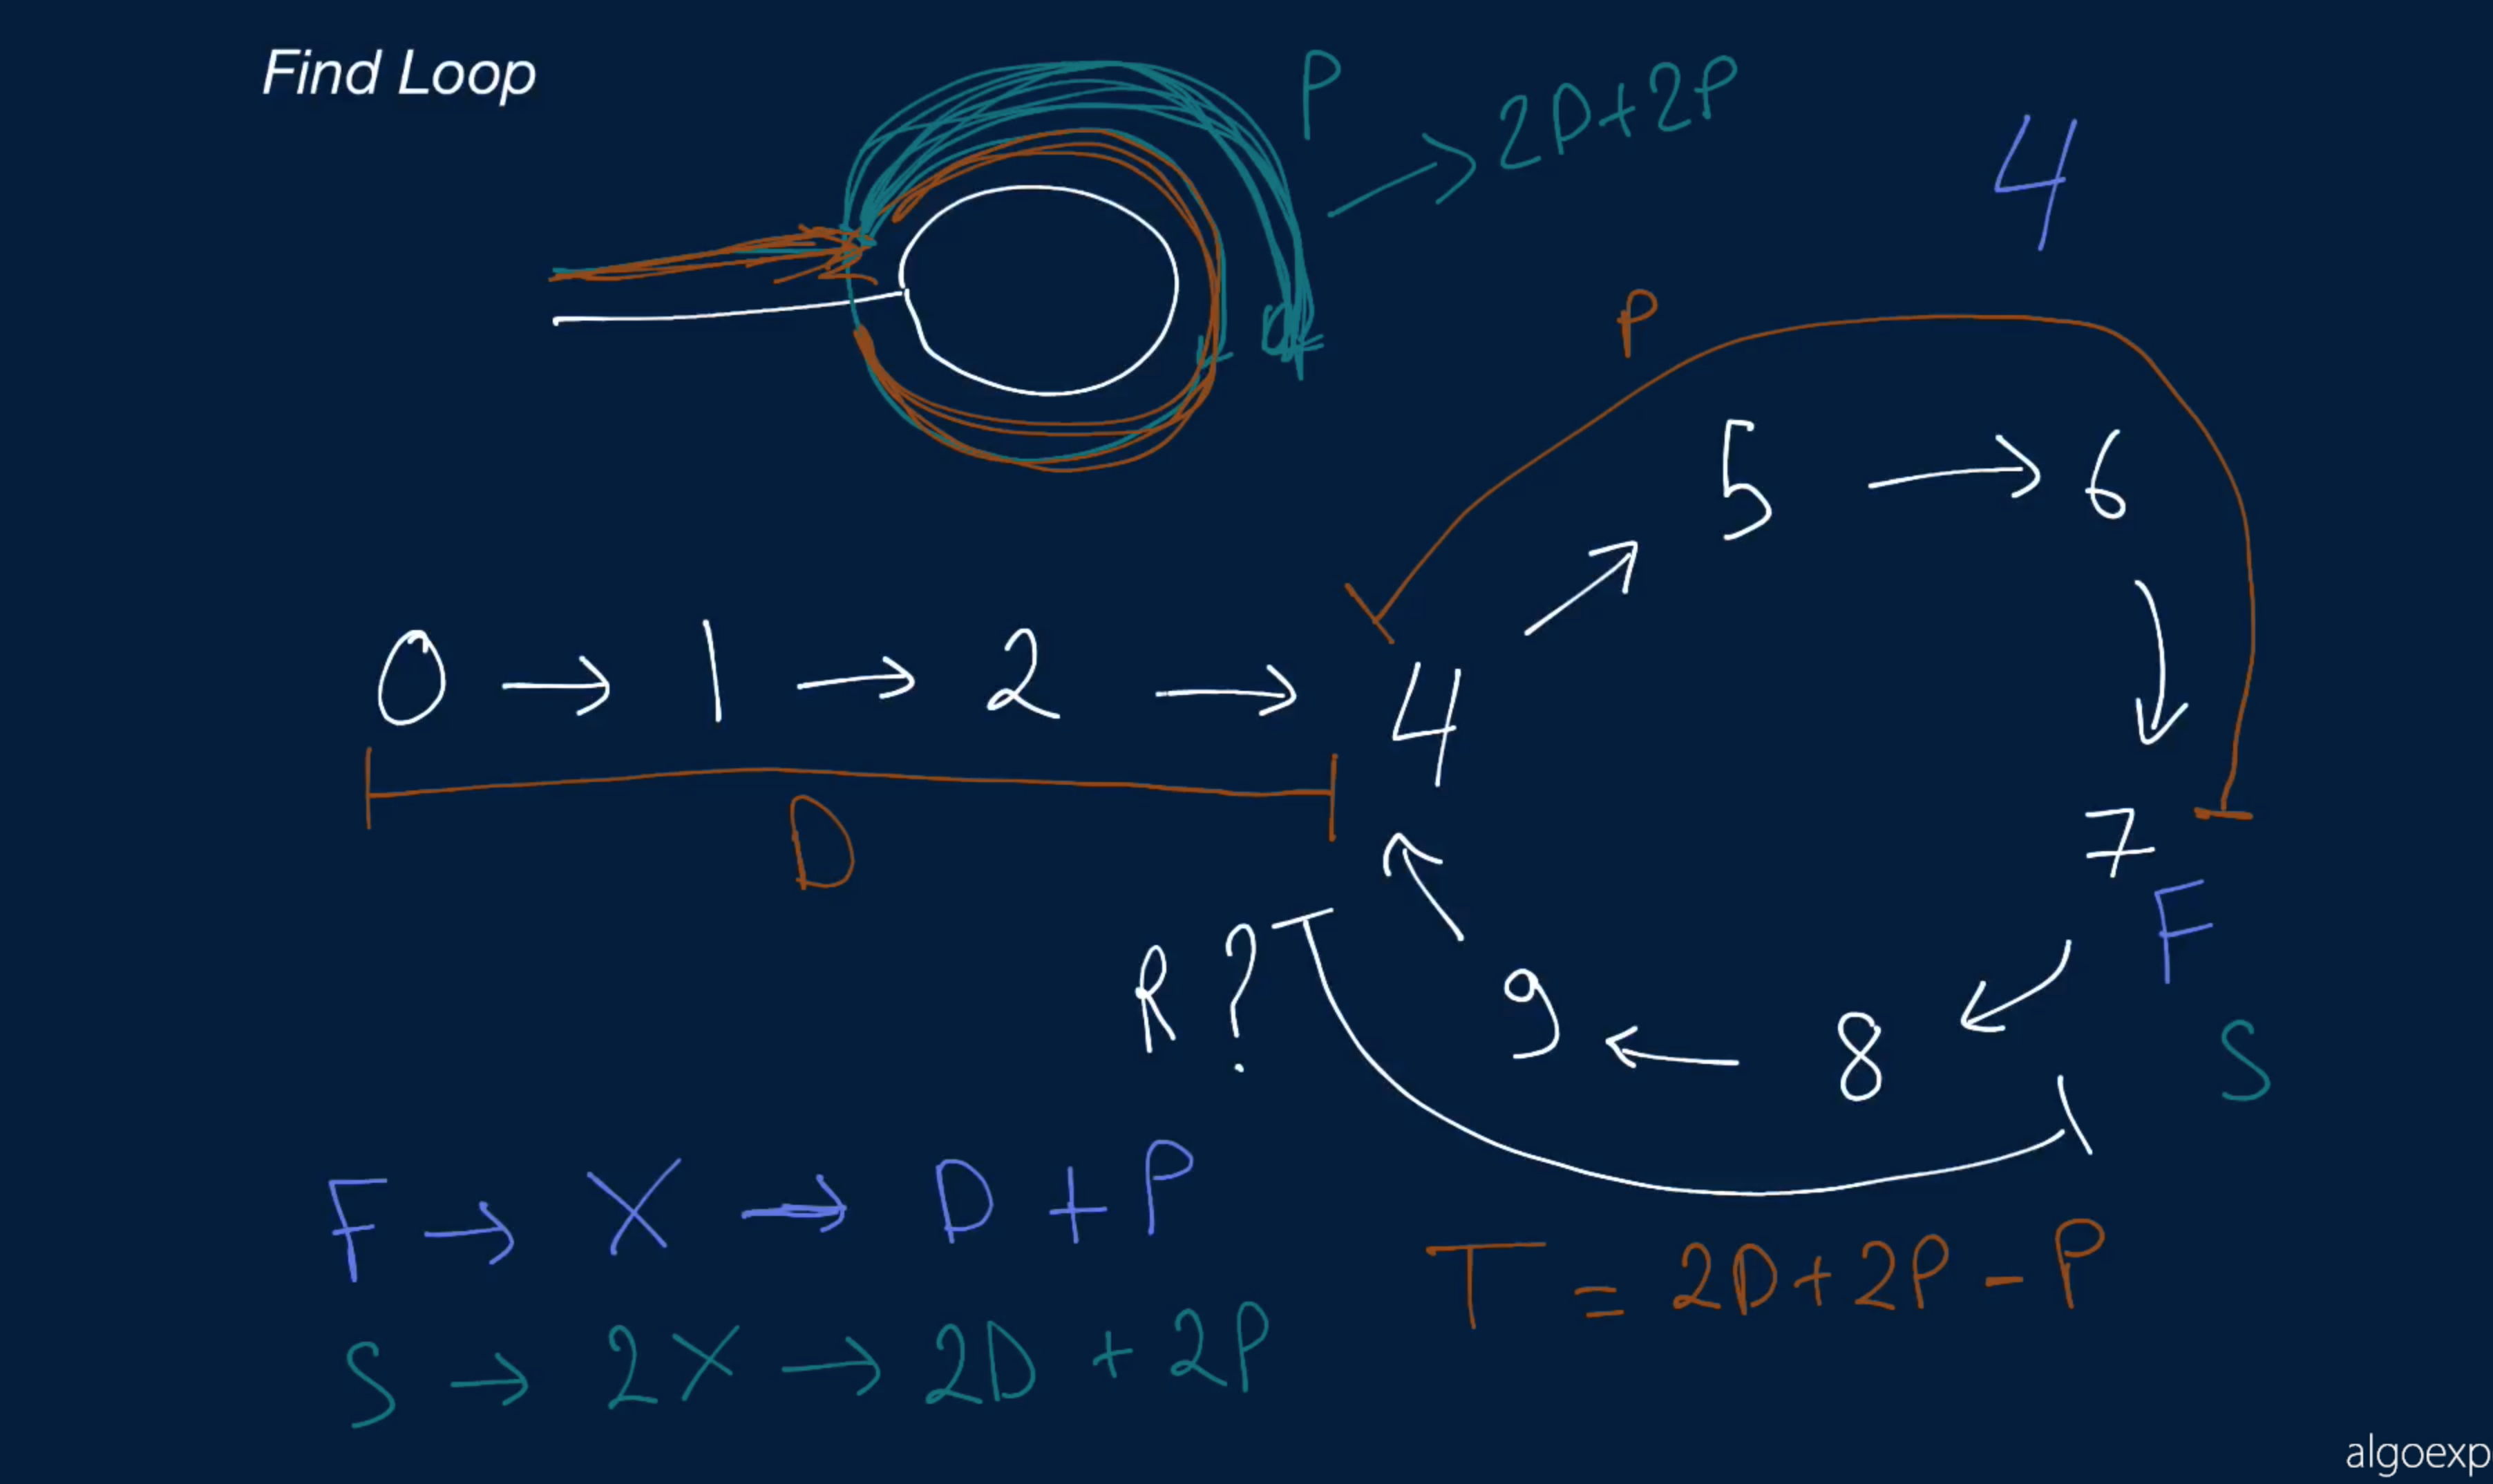 Find Loop
P
→ 2D+2P
4
P
5 → 6
0 → 1 → 2 → 4
D
7
F
R?
9 ← 8
S
F → X → D + P
T = 2D+2P - P
S → 2X → 2D + 2P
algoexp